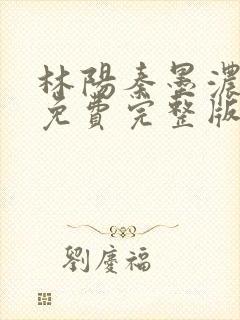 林陽秦墨濃
免費完整版
劉慶福